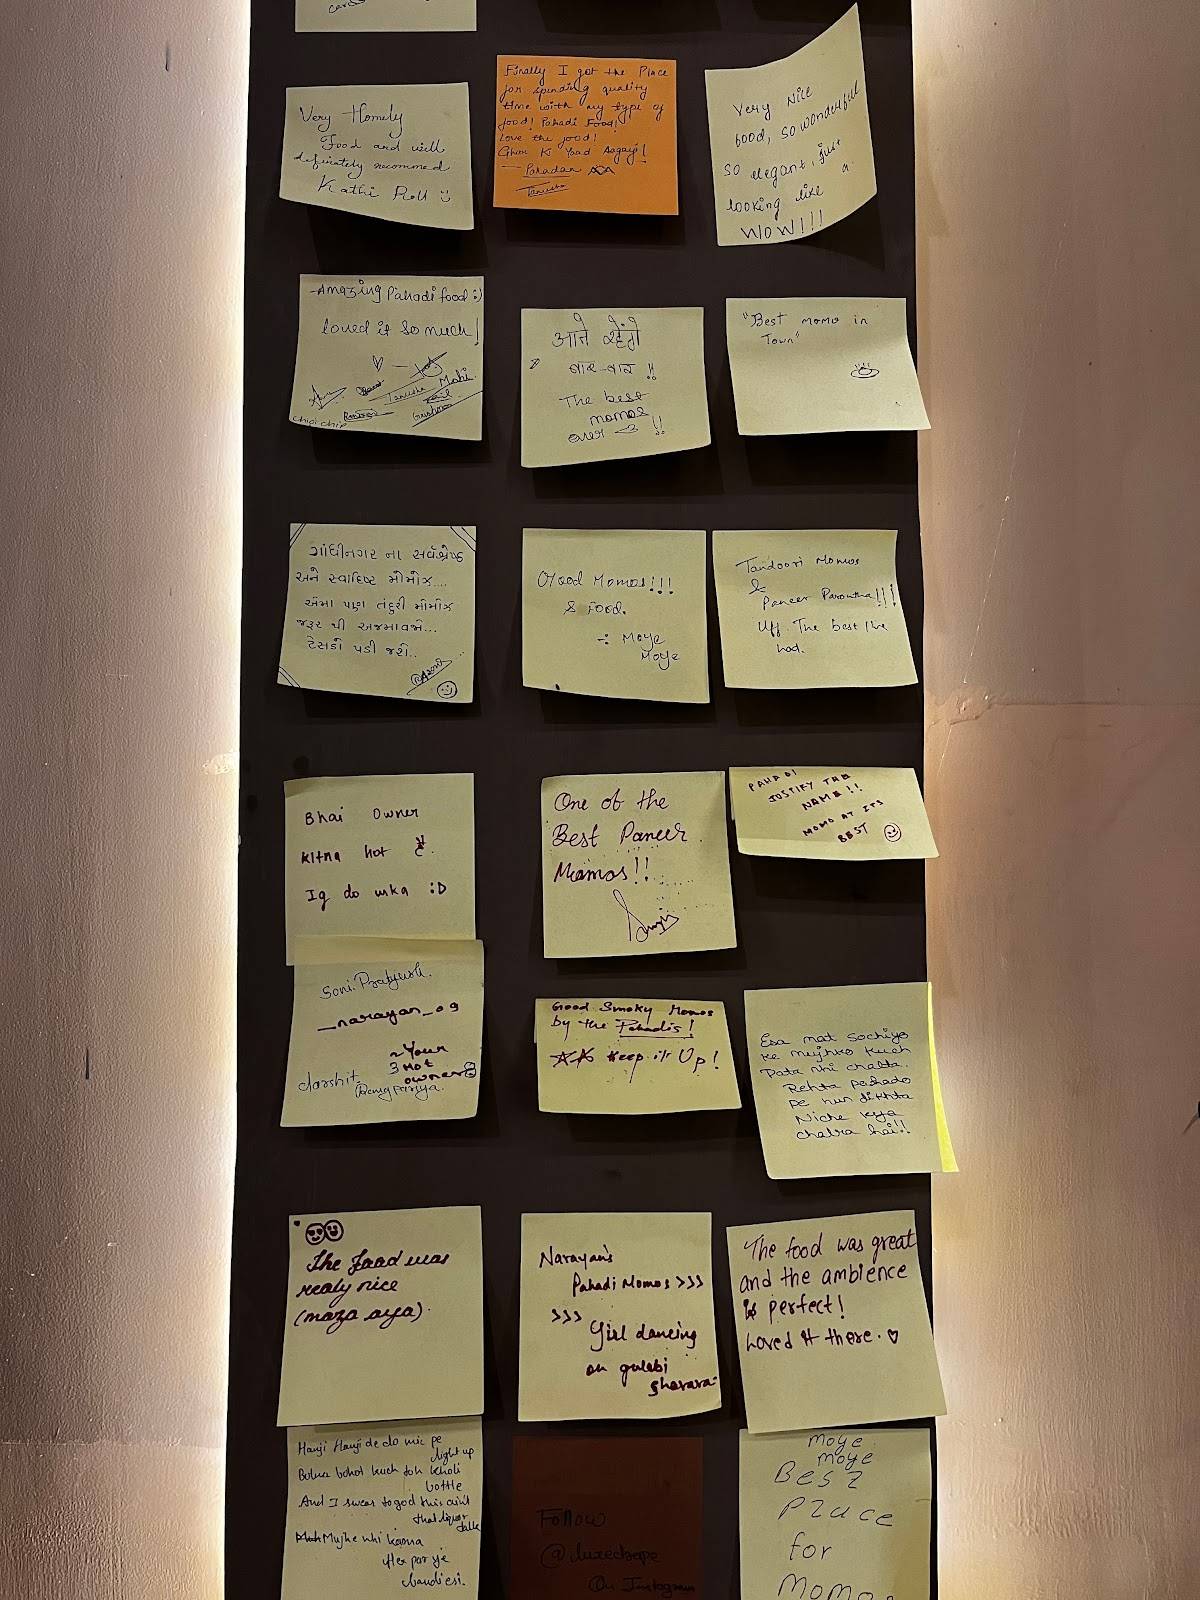 Very Homely
Food and will
definately recommed
Kathi Roll
Finally I got the Place
for spending quality
time with my type of
food! Pahadi Food!
Love the food!
Ghar Ki Yaad Aagayi!
Tanisha
Very Nice
food, so wonderful
so elegant, just
looking like a
WOW!!!
Amazing Pahadi food :)
loved it so much!
Mahi
Tanisha
chipi chip
आते रहेंगे
बार-बार !!
The best
momos
over <3 !!
"Best momo in
Town"
ગાંધીનગર ના સર્વશ્રેષ્ઠ
અને સ્વાદિષ્ટ મોમોઝ....
એમા પણ તંદુરી મોમોઝ
જરૂર થી અજમાવજો...
ટેસડો પડી જશે..
Good Momos!!!
& Food.
-: Moye
Moye
Tandoori Momos
&
Paneer Parontha!!!
Uff. The best I've
had.
Bhai owner
kitna hot
Ig do uska :D
One of the
Best Paneer
Momos!!
PAHADI
JUSTIFY THE
NAME!!
MOMO AT ITS
BEST
Soni. Pratyush.
_narayan_09
~Your
Hot
owner
darshit
Good Smoky Momos
by the Pahadis!
Keep it Up!
Esa mat sochiyo
ke mujhko kuch
Pata nhi chalta.
Rehta pahado
pe hun dikhta
Niche kya
chalra hai!!
The food was
realy nice
(maza aya).
Narayan's
Pahadi Momos >>>
>>> Girl dancing
on gulabi
sharara
The food was great
and the ambience
is perfect!
Loved it there. ♡
Hanji Hanji de do mic pe
light up
Bolna bohot kuch toh kholi
bottle
And I swear to god this ain't
that liquor
talk
Mujhe nhi karna
Follow
On Instagram
moye
moye
BEST
PLACE
for
MOMO